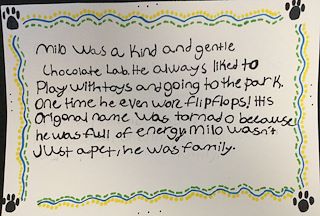 Milo was a kind and gentle
Chocolate Lab. He always liked to
Play with toys and going to the park.
One time he even wore flipflops! His
Orignal name was tornado because
he was full of energy. Milo wasn't
Just a pet, he was family.